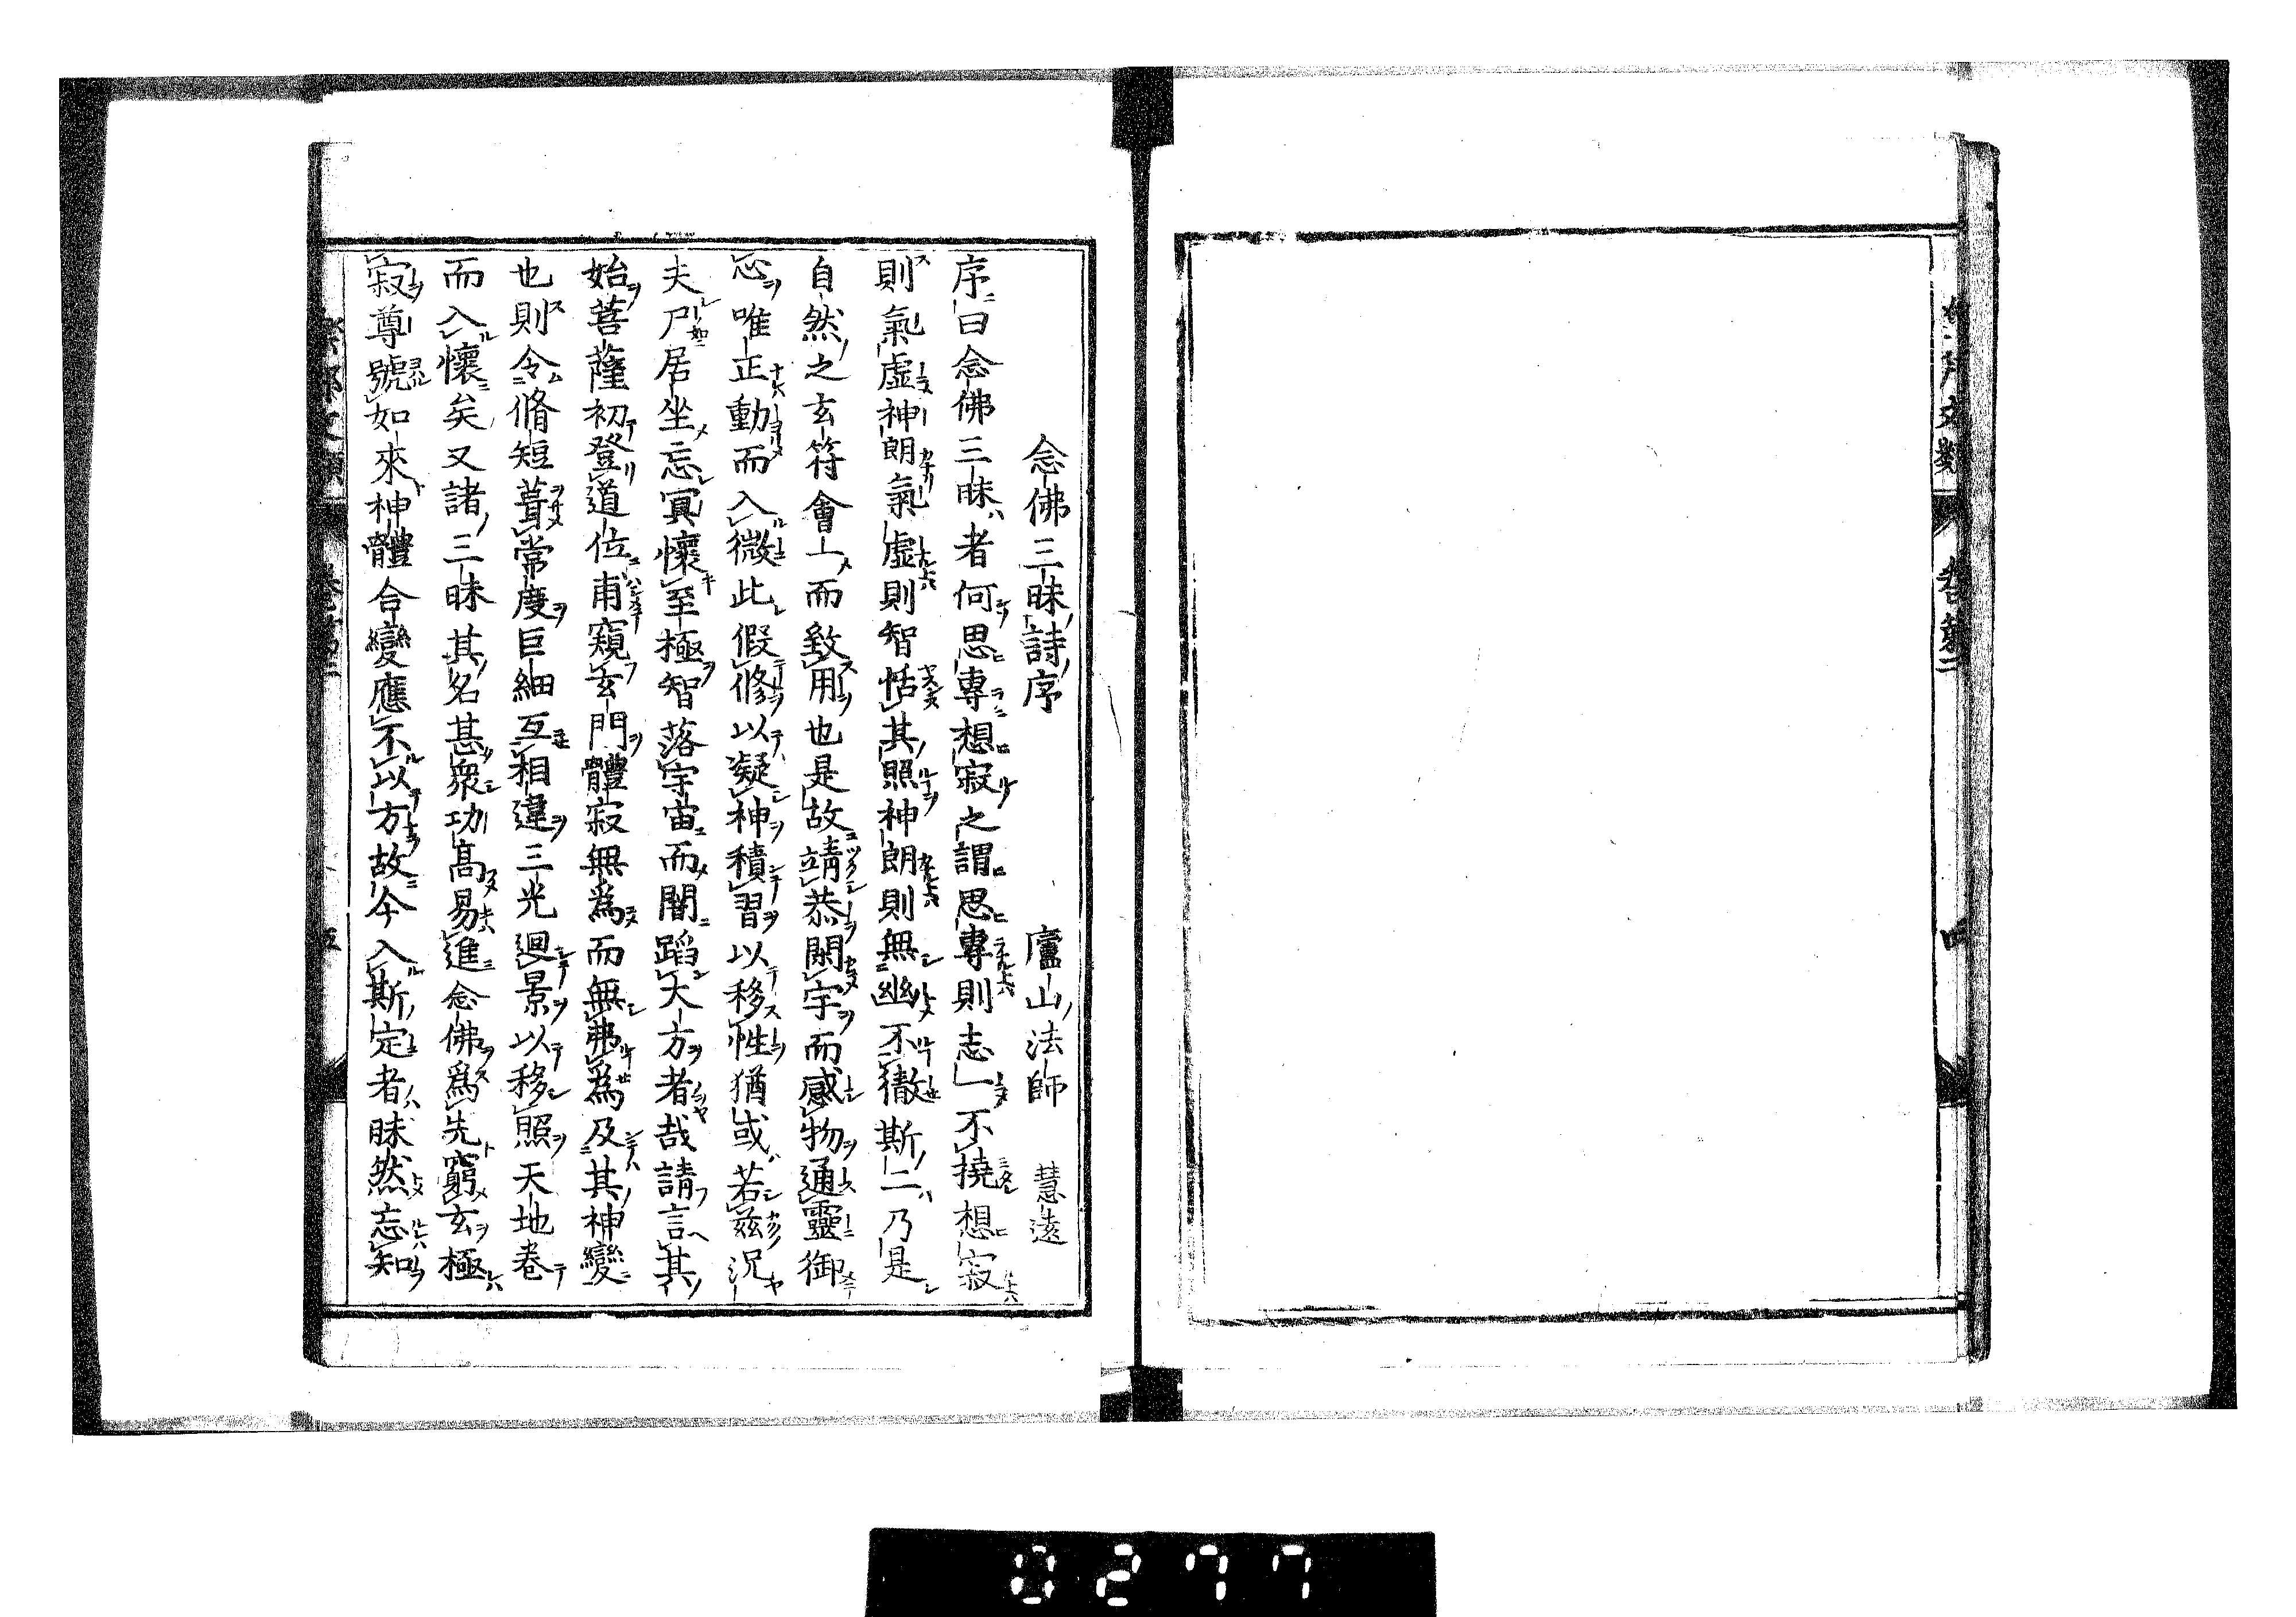 念佛三昧詩序　廬山法師　慧遠
序曰念佛三昧者何思專想寂之謂思專則志一不撓想寂
則氣虛神朗氣虛則智恬其照神朗則無幽不徹斯二乃是
自然之玄符會一而致用也是故靖恭閑宇而感物通靈御
心唯正動而入微此假修以凝神積習以移性猶或若茲況
夫尸居坐忘冥懷至極智落宇宙而闇蹈大方者哉請言其
始菩薩初登道位甫窺玄門體寂無為而無弗為及其神變
也則令脩短葺常度巨細互相違三光迴景以移照天地卷
而入懷矣又諸三昧其名甚衆功高易進念佛為先窮玄極
寂尊號如來神體合變應不以方故今入斯定者昧然忘知
文類
五
文類
卷第二
四
0277